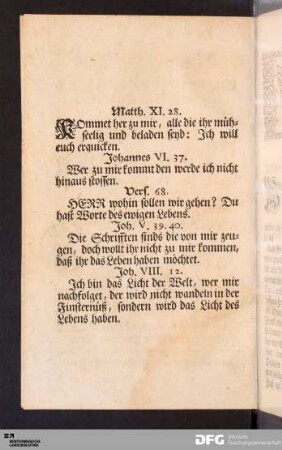 Matth. XI. 28.
KOmmet her zu mir, alle die ihr müh-
seelig und beladen seyd: Ich will
euch erquicken.
Johannes VI. 37.
Wer zu mir kommt den werde ich nicht
hinaus stossen.
Vers. 68.
HERR wohin sollen wir gehen? Du
hast Worte des ewigen Lebens.
Joh. V. 39. 40.
Die Schrifften sinds die von mir zeu-
gen, doch wollt ihr nicht zu mir kommen,
daß ihr das Leben haben möchtet.
Joh. VIII. 12.
Ich bin das Licht der Welt, wer mir
nachfolget, der wird nicht wandeln in der
Finsternüß, sondern wird das Licht des
Lebens haben.
DFG Deutsche
Forschungsgemeinschaft